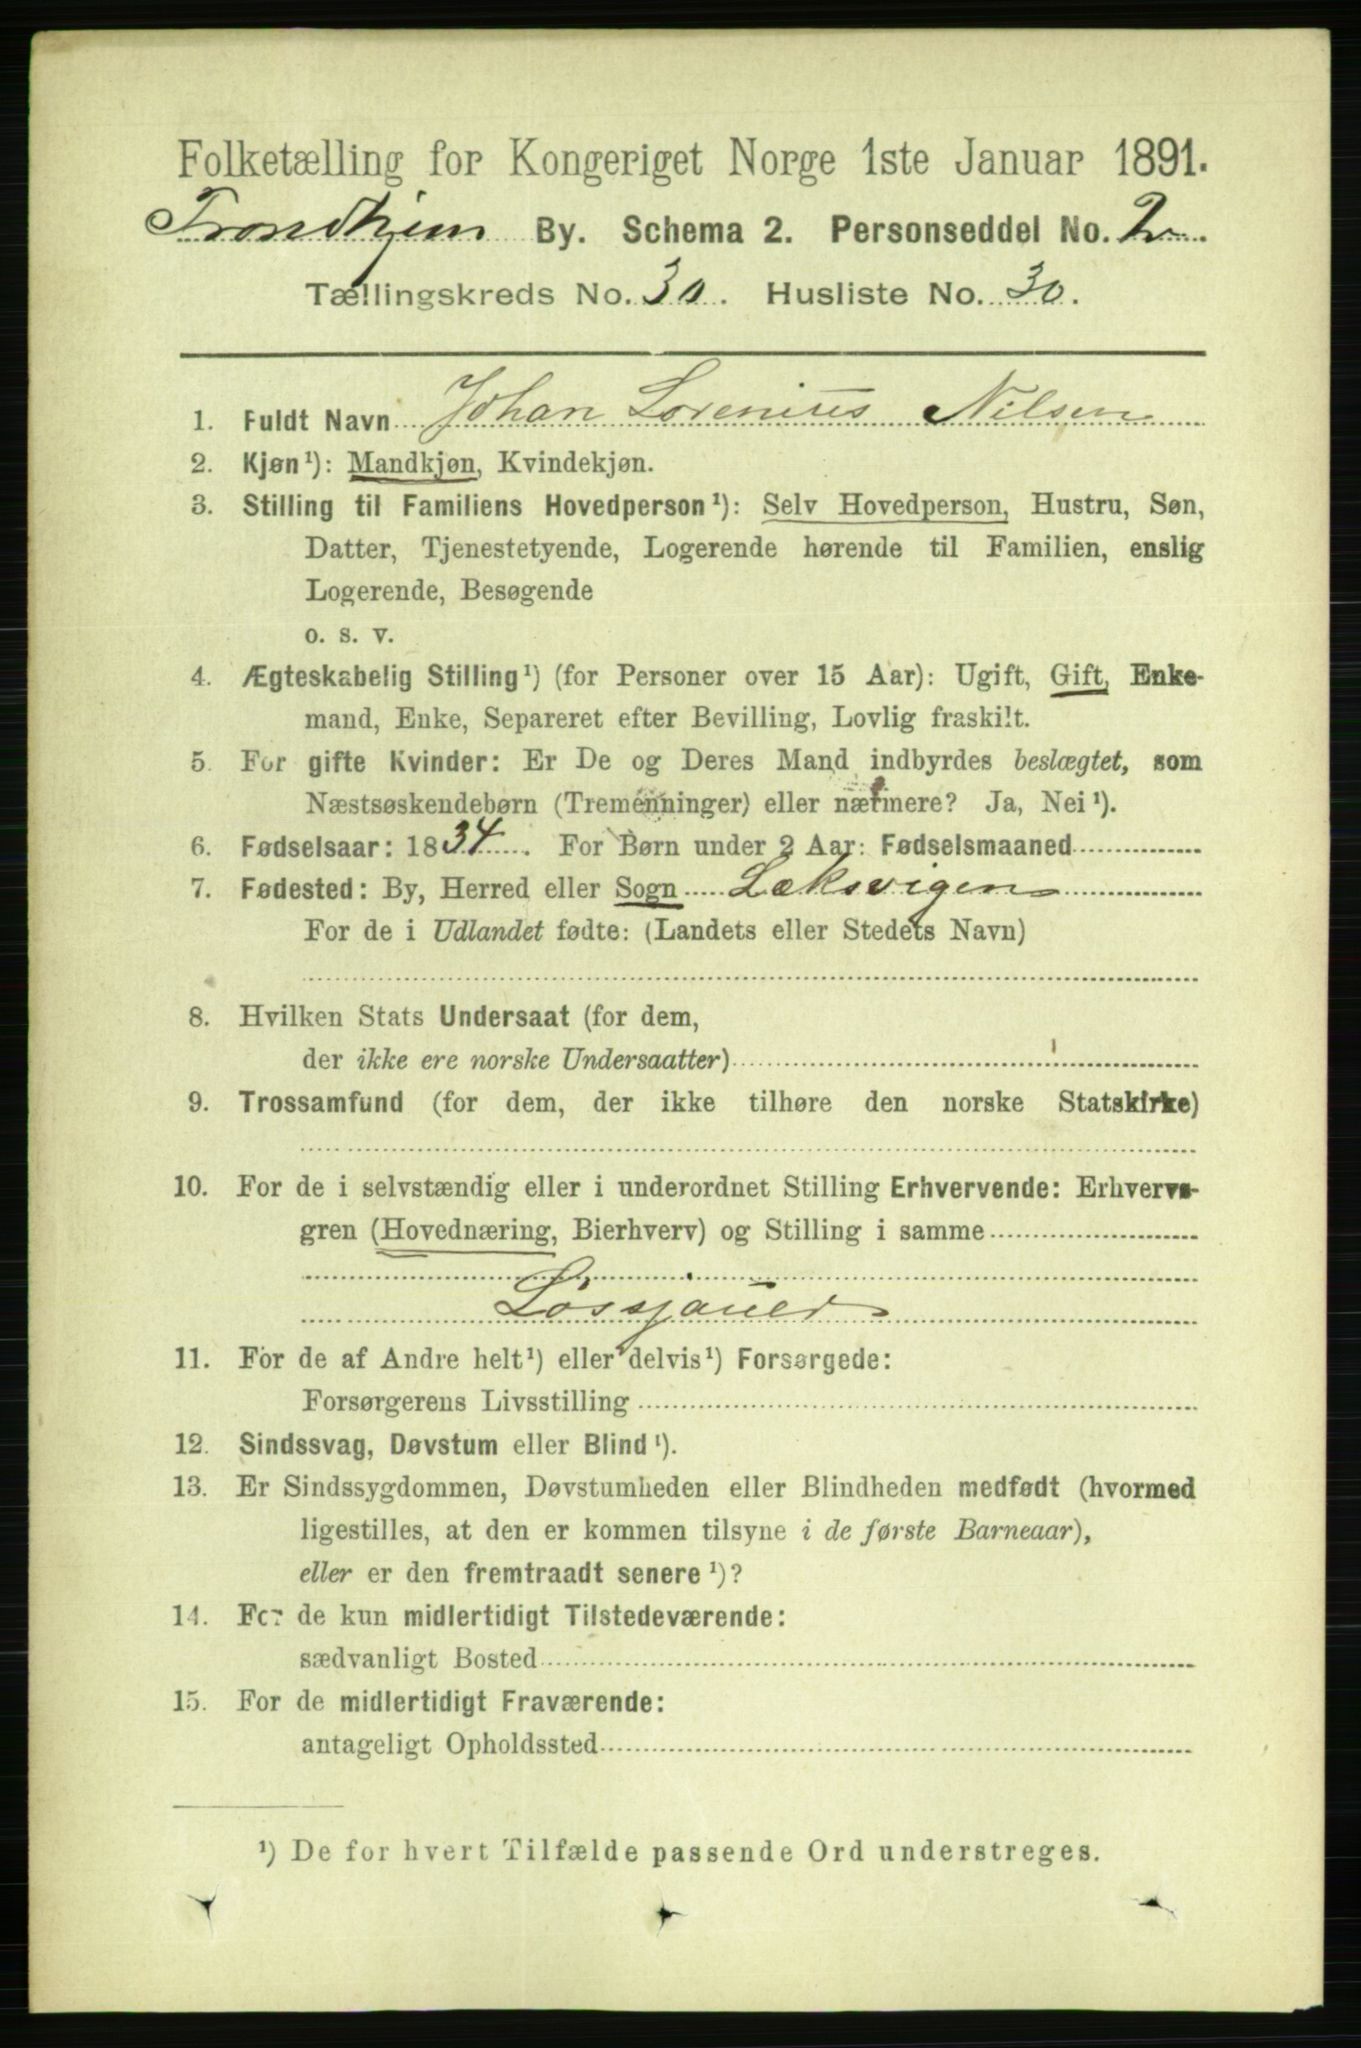 Folketælling for Kongeriget Norge 1ste Januar 1891.
Trondhjem By. Schema 2. Personseddel No. 2.
Tællingskreds No. 30. Husliste No. 30.
1. Fuldt Navn Johan Lorenius Nilsen
2. Kjøn¹): Mandkjøn, Kvindekjøn.
3. Stilling til Familiens Hovedperson¹): Selv Hovedperson, Hustru, Søn,
Datter, Tjenestetyende, Logerende hørende til Familien, enslig
Logerende, Besøgende
o. s. v.
4. Ægteskabelig Stilling¹) (for Personer over 15 Aar): Ugift, Gift, Enke-
mand, Enke, Separeret efter Bevilling, Lovlig fraskilt.
5. For gifte Kvinder: Er De og Deres Mand indbyrdes beslægtet, som
Næstsøskendebørn (Tremenninger) eller nærmere? Ja, Nei¹).
6. Fødselsaar: 1834. For Børn under 2 Aar: Fødselsmaaned
7. Fødested: By, Herred eller Sogn Læksvigen
For de i Udlandet fødte: (Landets eller Stedets Navn)
8. Hvilken Stats Undersaat (for dem,
der ikke ere norske Undersaatter)
9. Trossamfund (for dem, der ikke tilhøre den norske Statskirke)
10. For de i selvstændig eller i underordnet Stilling Erhvervende: Erhvervs-
gren (Hovednæring, Bierhverv) og Stilling i samme
Løssjauer
11. For de af Andre helt¹) eller delvis¹) Forsørgede:
Forsørgerens Livsstilling
12. Sindssvag, Døvstum eller Blind¹).
13. Er Sindssygdommen, Døvstumheden eller Blindheden medfødt (hvormed
ligestilles, at den er kommen tilsyne i de første Barneaar),
eller er den fremtraadt senere¹)?
14. For de kun midlertidigt Tilstedeværende:
sædvanligt Bosted
15. For de midlertidigt Fraværende:
antageligt Opholdssted
¹) De for hvert Tilfælde passende Ord understreges.